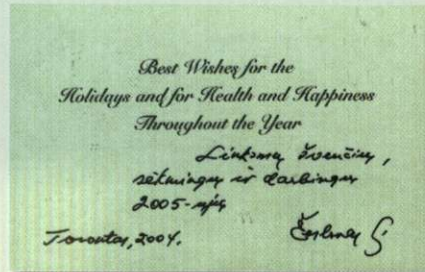 Best Wishes for the
Holidays and for Health and Happiness
Throughout the Year
Linksmų švenčių,
sėkmingų ir darbingų
2005-ųjų
Toronto, 2004.